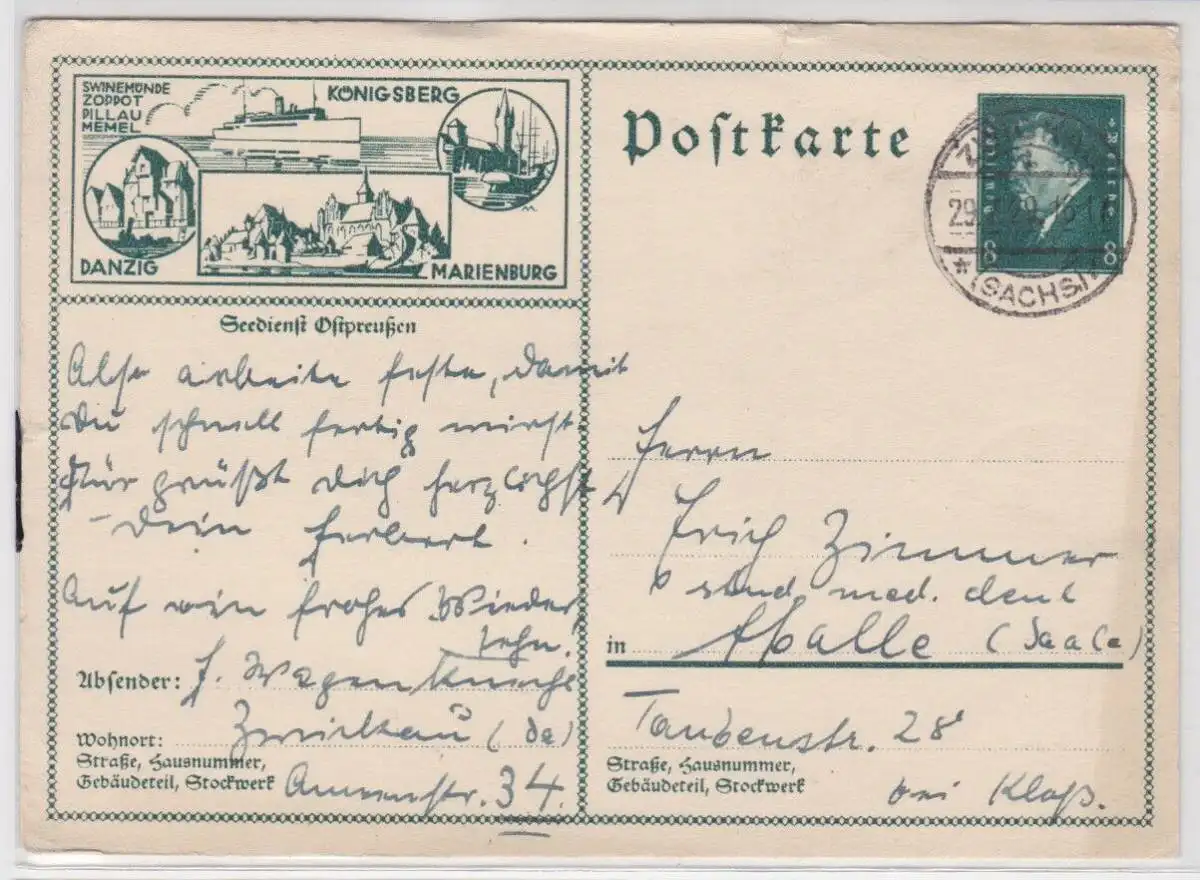 SWINEMÜNDE
ZOPPOT
PILLAU
MEMEL
KÖNIGSBERG
DANZIG
MARIENBURG
Seedienst Ostpreußen
Postkarte
Deutsches Reich
8 8
29. 29. 16-17
* (SACHS.)
Also arbeite feste, damit
Du schnell fertig wirst.
Für grüßt Dich herzlichst
Dein Herbert.
Auf ein frohes Wieder
sehn!
Absender: H. Wagenknecht
Wohnort: Zwickau (Sa)
Straße, Hausnummer,
Gebäudeteil, Stockwerk
34.
Herrn
Erich Zimmer
stud. med. dent
in Halle (Saale)
Taubenstr. 28
Straße, Hausnummer,
Gebäudeteil, Stockwerk
bei Klaß.